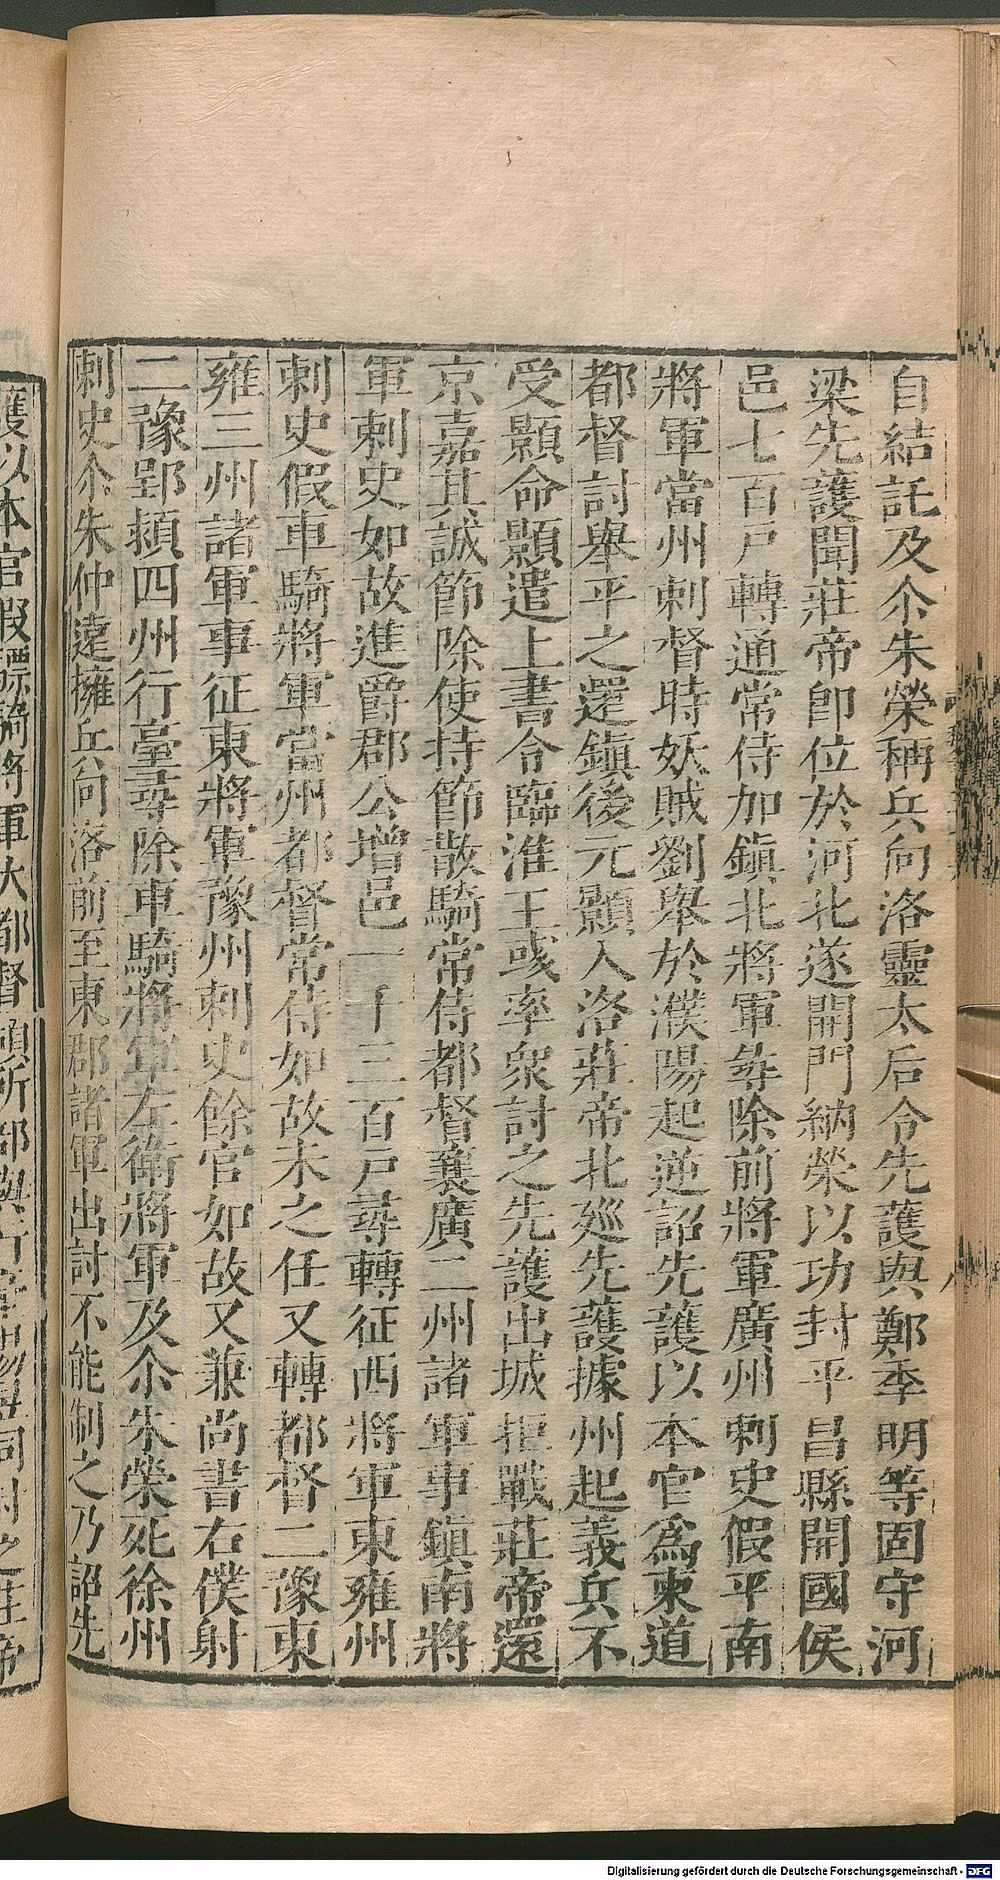 自結託及尒朱榮稱兵向洛靈太后令先護與鄭季明等固守河
梁先護聞莊帝卽位於河北遂開門納榮以功封平昌縣開國侯
邑七百戸轉通常侍加鎭北將軍尋除前將軍廣州刺史假平南
將軍當州刺督時妖賊劉舉於濮陽起逆詔先護以本官爲東道
都督討舉平之還鎭後元顥入洛莊帝北廵先護據州起義兵不
受顥命顥遣上書令臨淮王彧率衆討之先護出城拒戰莊帝還
京嘉其誠節除使持節散騎常侍都督襄廣二州諸軍事鎭南將
軍刺史如故進爵郡公增邑一千三百戸尋轉征西將軍東雍州
刺史假車騎將軍當州都督常侍如故未之任又轉都督二豫東
雍三州諸軍事征東將軍豫州刺史餘官如故又兼尚書右僕射
二豫郢潁四州行臺尋除車騎將軍左衛將軍及尒朱榮死徐州
刺史尒朱仲遠擁兵向洛前至東郡諸軍出討不能制之乃詔先
護以本官假驃騎將軍大都督領所部與行臺楊昱同討之莊帝
Digitalisierung gefördert durch die Deutsche Forschungsgemeinschaft - DFG